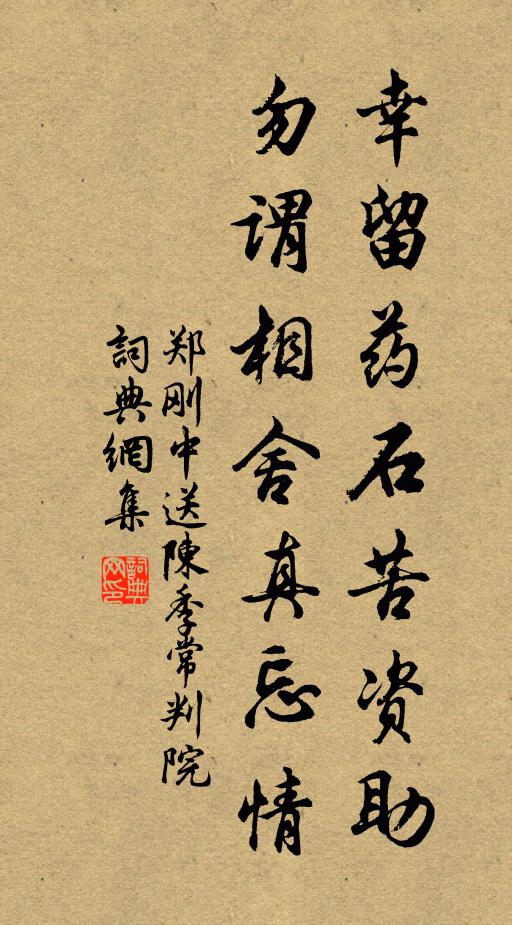 幸留药石苦资助
勿谓相舍真忘情
郑刚中送陳季常判院
詞典網集
詞典
网印